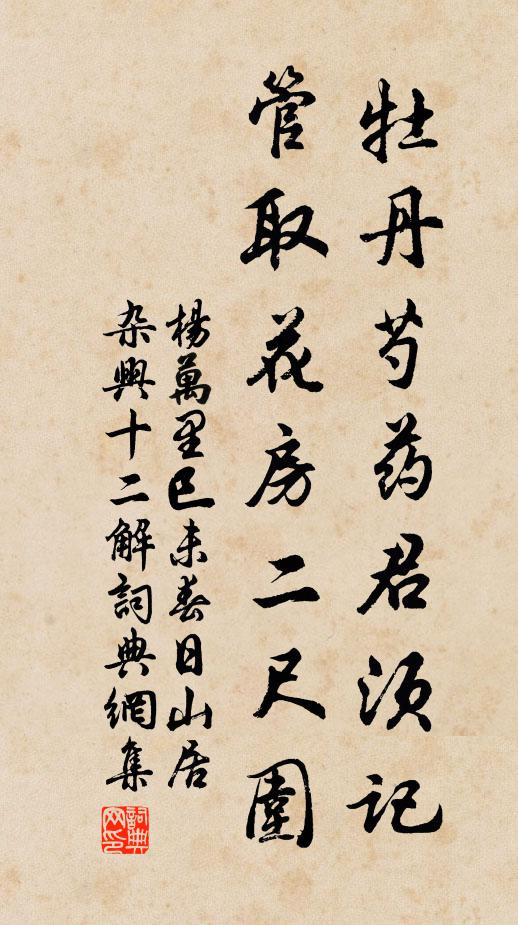 牡丹芍药君须记
管取花房二尺圍
楊萬里已未春日山居
杂興十二解詞典網集
詞典网印